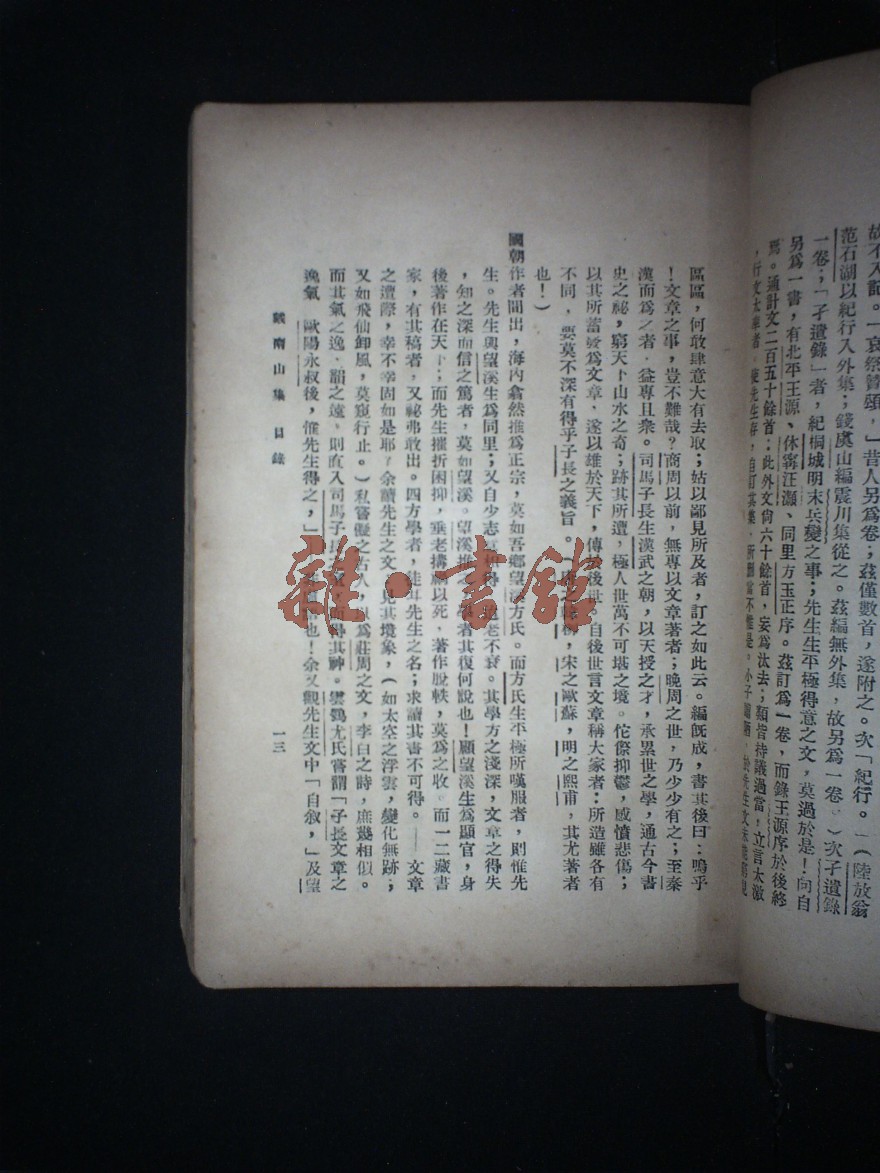 故不入記。一哀祭
頌，」昔人另爲卷；茲僅數首，遂附之。次「紀行。」（陸放翁
范石湖以紀行入外集；錢虞山編震川集從之。茲編無外集，故另爲一卷。）次孑遺錄
一卷；「孑遺錄」者，紀桐城明末兵變之事；先生生平極得意之文，莫過於是！向自
另爲一書，有北平王源、休寧汪灝、同里方玉正序。茲訂爲一卷，而錄王源序於後終
焉。通計文二百五十餘首：此外文尙六十餘首，妄爲汰去；類皆持議過當，立言太激
，行文太
區區，何敢肆意大有去取；姑以鄙見所及者，訂之如此云。編旣成，書其後曰：嗚乎
！文章之事，豈不難哉？商周以前，無專以文章著者；晚周之世，乃少少有之；至秦
漢而爲之者，益專且衆。司馬子長生漢武之朝，以天授之才，承累世之學，通古今書
史之祕，窮天下山水之奇；跡其所遭，極人世萬不可堪之境。佗傺抑鬱，感憤悲傷；
以其所蓄發爲文章，遂以雄於天下，傳於後世。自後世言文章稱大家者：所造雖各有
不同，要莫不深有得乎子長之義旨。（唐之韓柳，宋之歐蘇，明之熙甫，其尤著者
也！）
國朝作者間出，海內翕然推爲正宗，莫如吾鄉望溪方氏。而方氏生平極所嘆服者，則惟先
生。先生與望溪生爲同里；又自少志 老不衰。其學方之淺深，文章之得失
，知之深而信之篤者，莫如望溪。望溪推之，學者其復何說也！顧望溪生爲顯官，身
後著作在天下；而先生摧折困抑，垂老搆禍以死，著作脫軼，莫爲之收。而一二藏書
家，有其稿者，又祕弗敢出。四方學者，徒耳先生之名；求讀其書不可得。——文章
之遭際，幸不幸固如是耶？余讀先生之文，見其境象，（如太空之浮雲，變化無跡；
又如飛仙御風，莫窺行止。）私嘗儗之古人，以爲莊周之文，李白之詩，庶幾相似。
而其氣之逸，韻之遠，則直入司馬子長之 而得其神。雲鶴尤氏嘗謂「子長文章之
逸氣，歐陽永叔後，惟先生得之，」 也！余又觀先生文中「自敘，」及望
戴南山集　目錄
一三
雜·書館